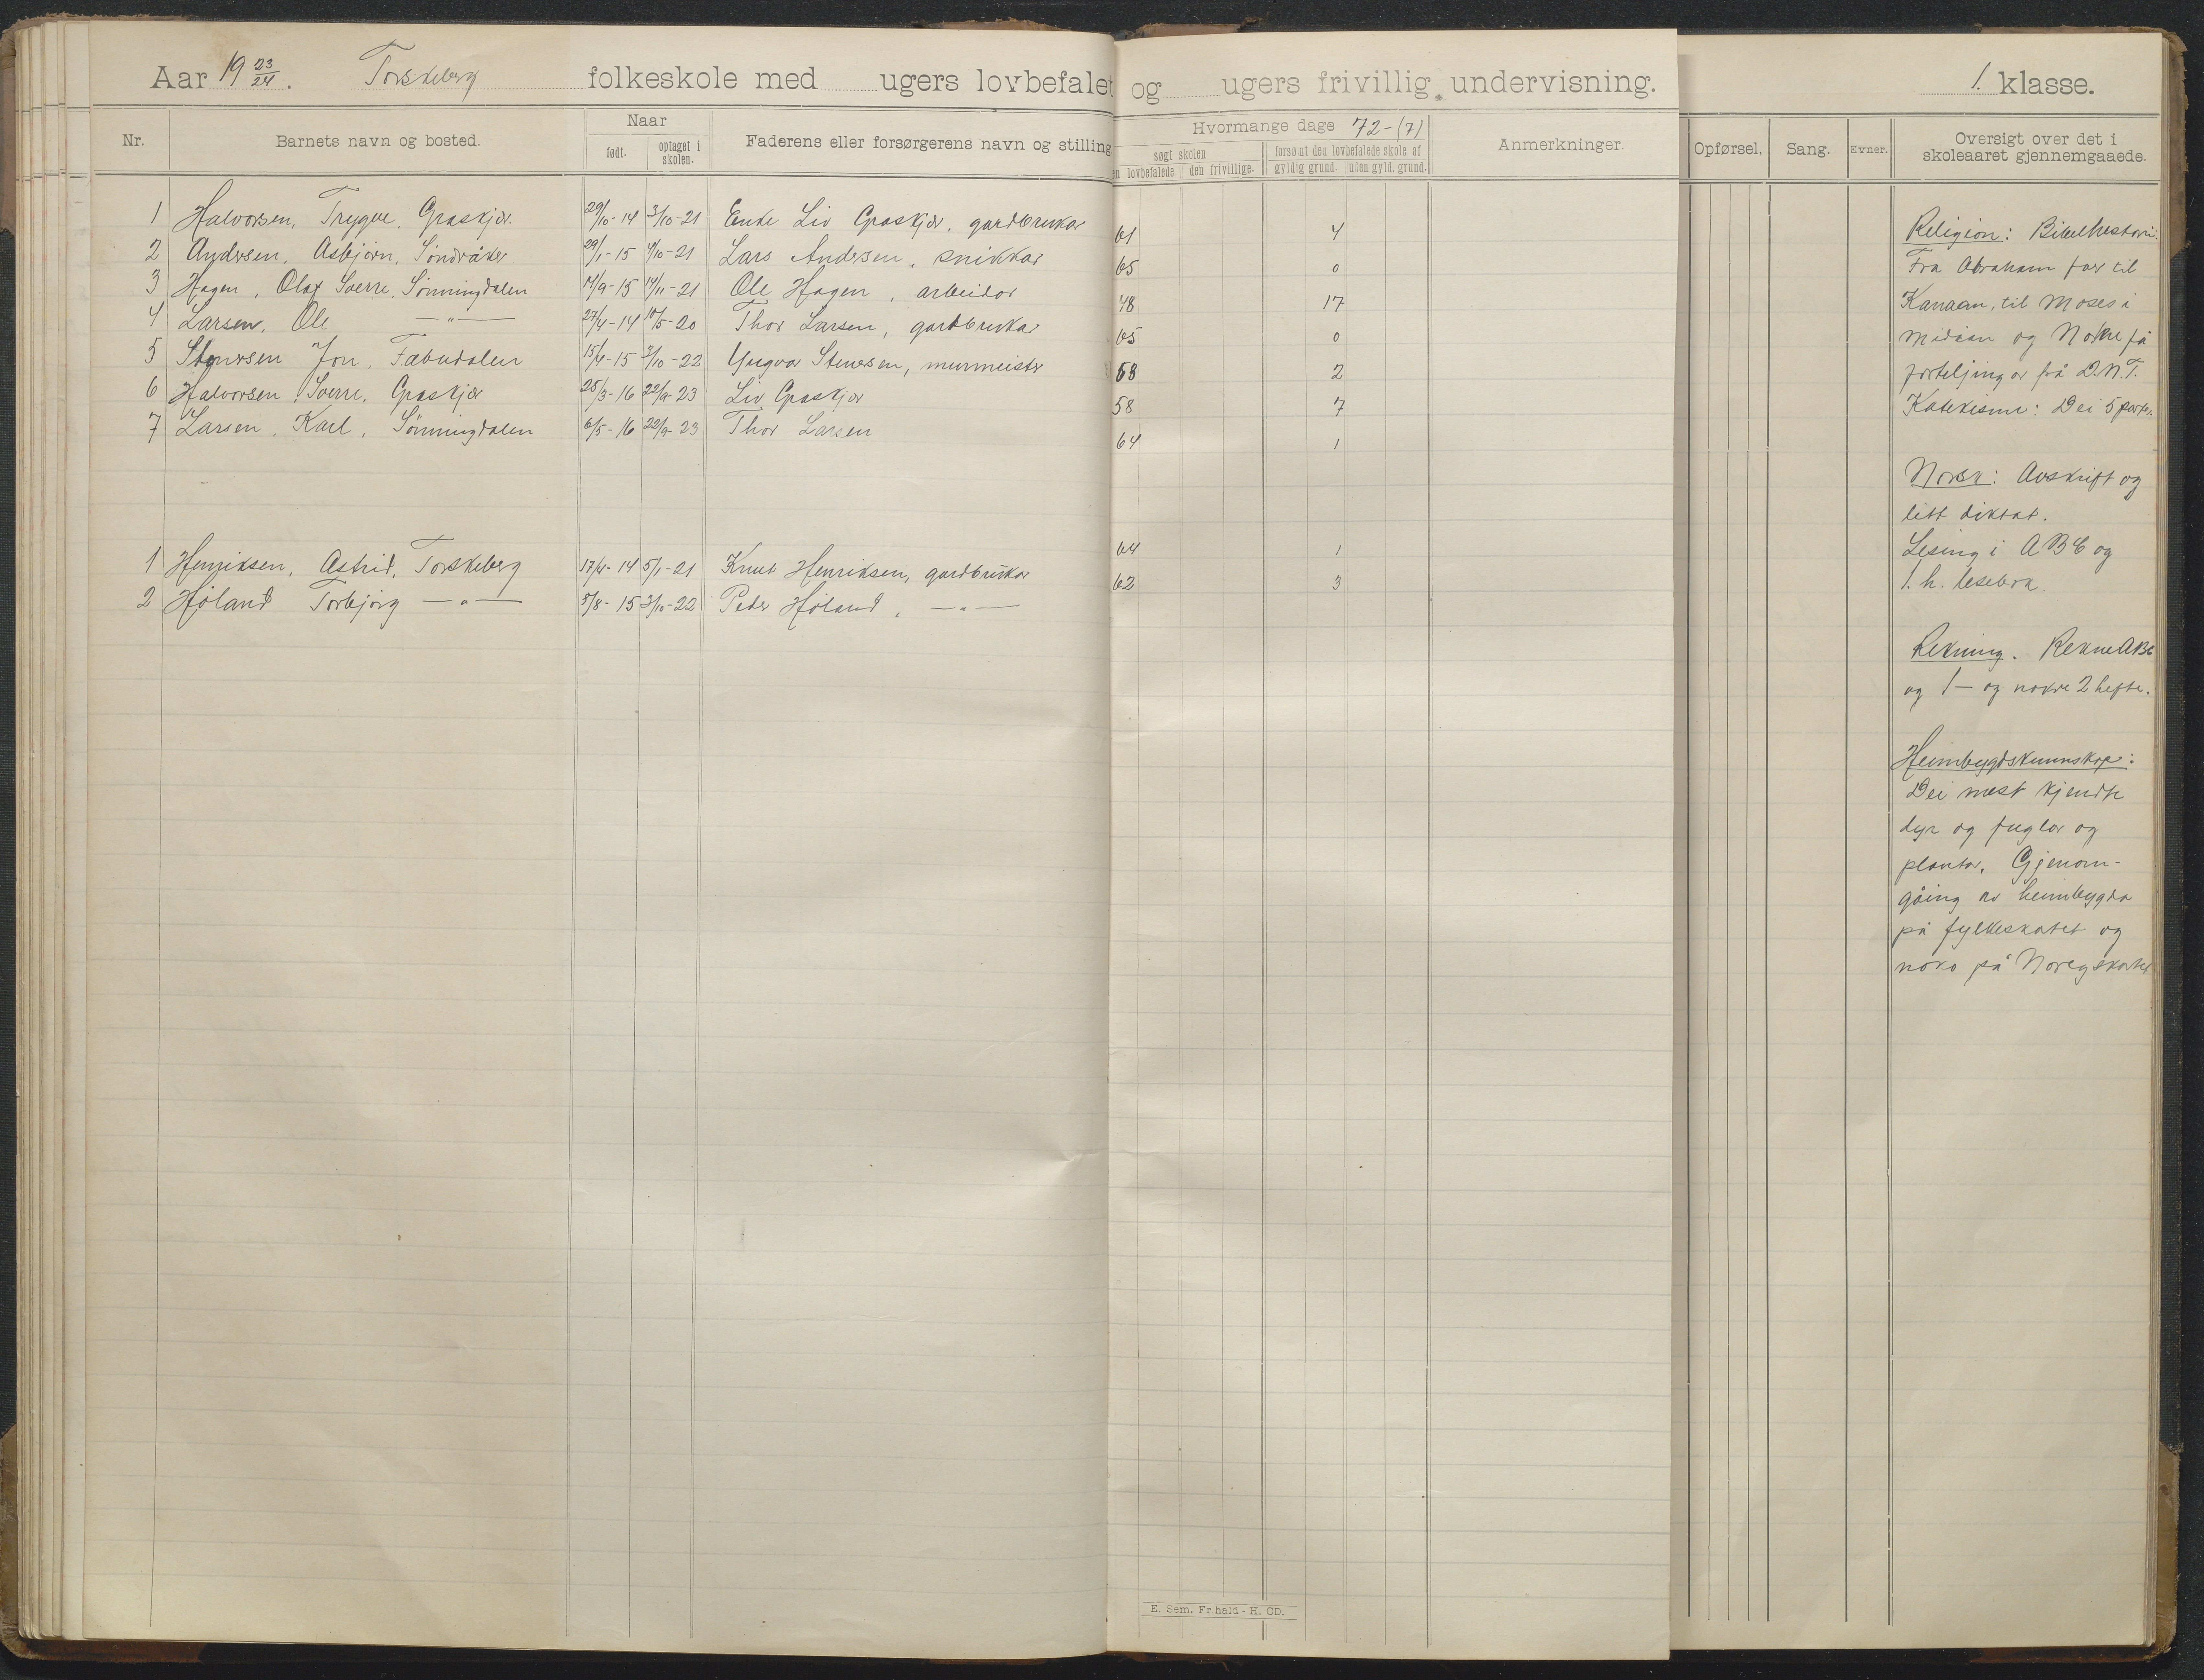 Aar 19 23/24. Torskeberg folkeskole med ugers lovbefalet og ugers frivillig undervisning. 1. klasse.
Nr. Barnets navn og bosted. Naar født. optaget i skolen. Faderens eller forsørgerens navn og stilling Hvormange dage 72-(7) søgt skolen den lovbefalede den frivillige. forsømt den lovbefalede skole af gyldig grund. uden gyld. grund. Anmerkninger. Opførsel. Sang. Evner. Oversigt over det i skoleaaret gjennemgaaede.
1 Halvorsen, Trygve, Graskjær 29/10-14 3/10-21 Enke Liv Graskjær, gardbrukar 61 4
2 Andersen, Asbjörn, Söndråker 29/1-15 4/10-21 Lars Andersen, snikkar 65 0
3 Hagen, Olaf Sverre, Sönningdalen 14/9-15 14/11-21 Ole Hagen, arbeidar 48 17
4 Larsen, Ole —"— 27/4-14 10/5-20 Thor Larsen, gardbrukar 65 0
5 Stenersen Jon, Fabudalen 15/4-15 3/10-22 Yngvar Stenersen, murmeister 63 2
6 Halvorsen, Sverre, Graskjær 25/3-16 22/9-23 Liv Graskjær 58 7
7 Larsen, Karl, Sönningdalen 6/5-16 22/9-23 Thor Larsen 64 1
1 Henriksen, Astrid, Torskeberg 17/4-14 5/1-21 Knut Henriksen, gardbrukar 64 1
2 Höland Torbjörg —"— 5/8-15 3/10-22 Peder Höland, —"— 62 3
Religion: Bibelhestori:
Fra Abraham for til
Kanaan, til Moses i
Midian og Nokre få
forteljingar frå D.N.T.
Katekisme: Dei 5 parta.
Norsk: Avskrift og
litt diktat.
Lesing i ABC og
1. h. lesebok.
Rekning. Rekne ABC
og 1— og nokre 2 hefte.
Heimbygdskunnskap:
Dei mest kjendte
dyr og fuglar og
plantar. Gjenom-
gåing av heimbygda
på fylkeskartet og
noko på Noregskartet
E. Sem, Fr.hald - H. CD.